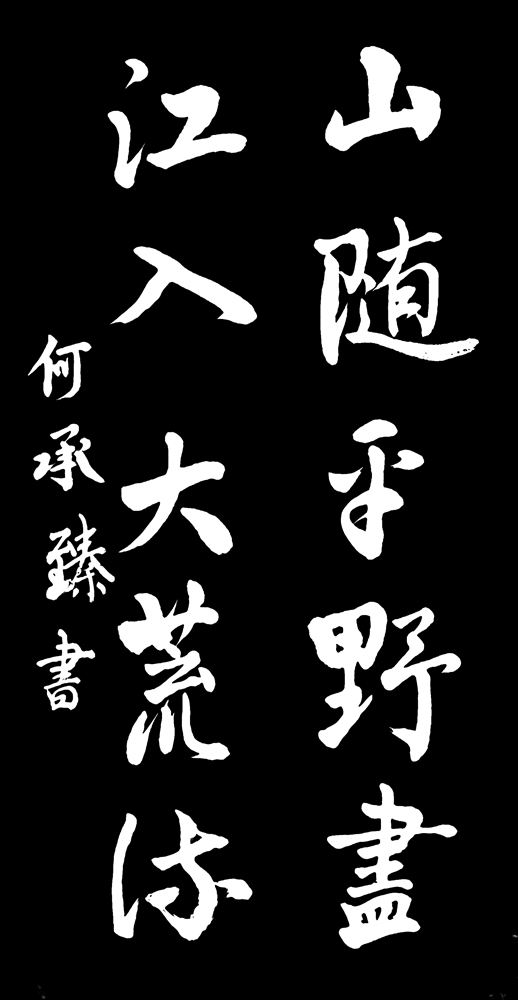 山随平野盡
江入大荒流
何承臻書